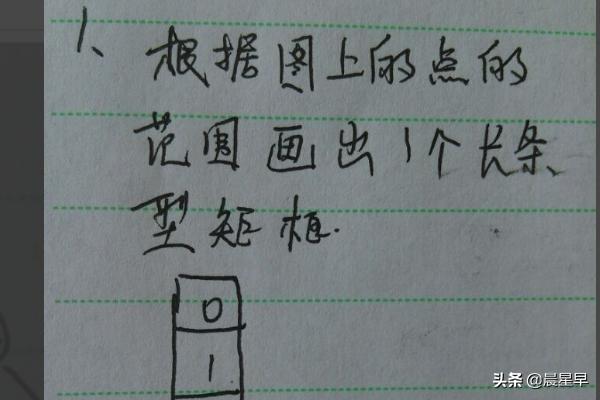 1、根据图上的点的
范围画出1个长条
型矩框.
0
1
头条 @晨星早